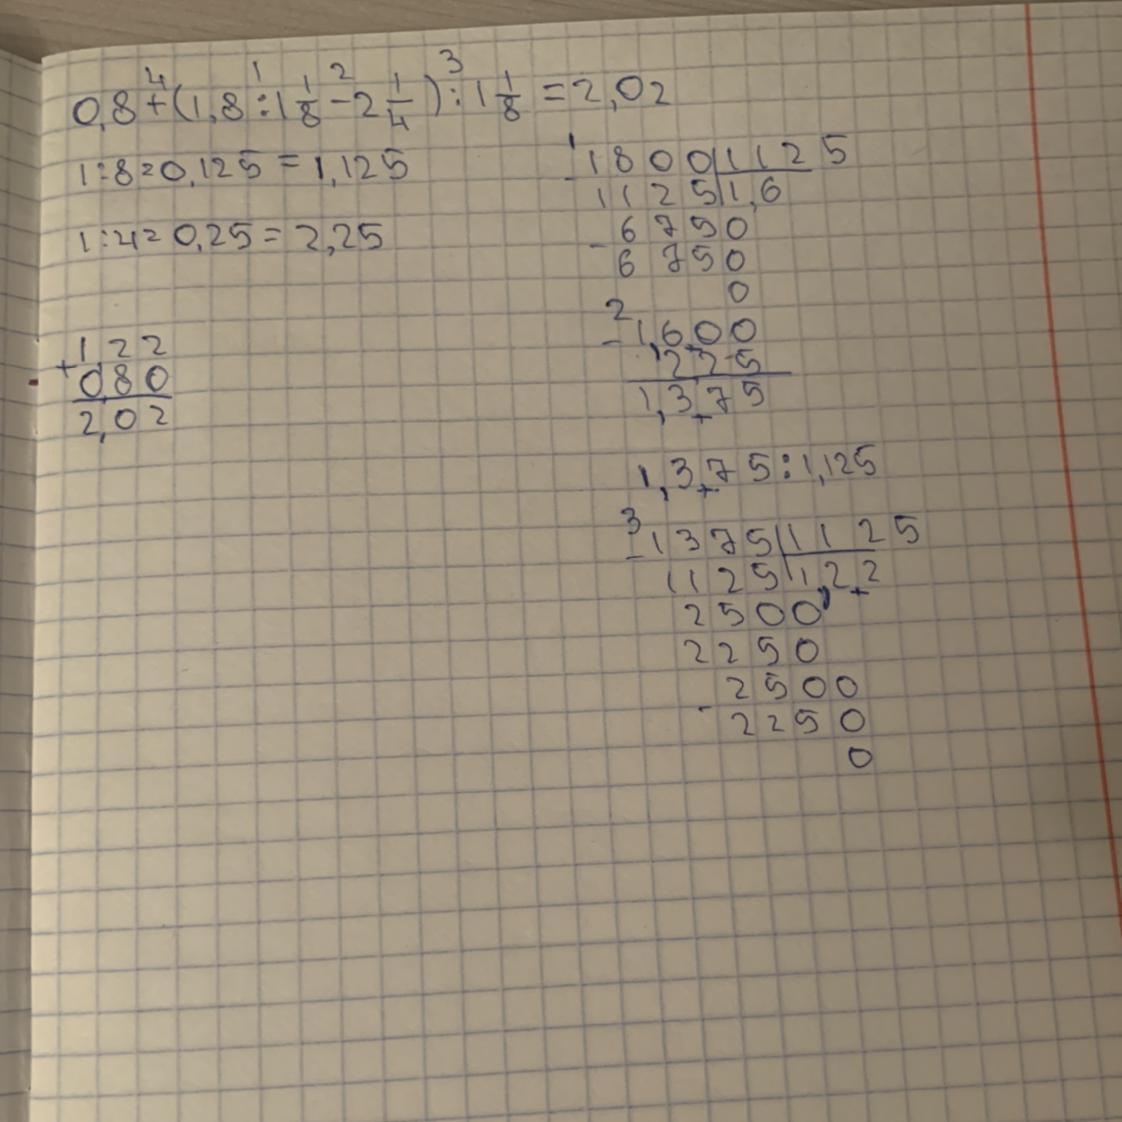 4 1 2 3
0,8+(1,8:1 1/8-2 1/4):1 1/8=2,02
1:8=0,125=1,125
1:4=0,25=2,25
+1,22
0,80
2,02
1
-1800|1125
1125|1,6
-6750
6750
0
2
-1,600
225
1,375
1,375:1,125
3
-1375|1125
1125|1,22
2500
2250
-2500
2250
0